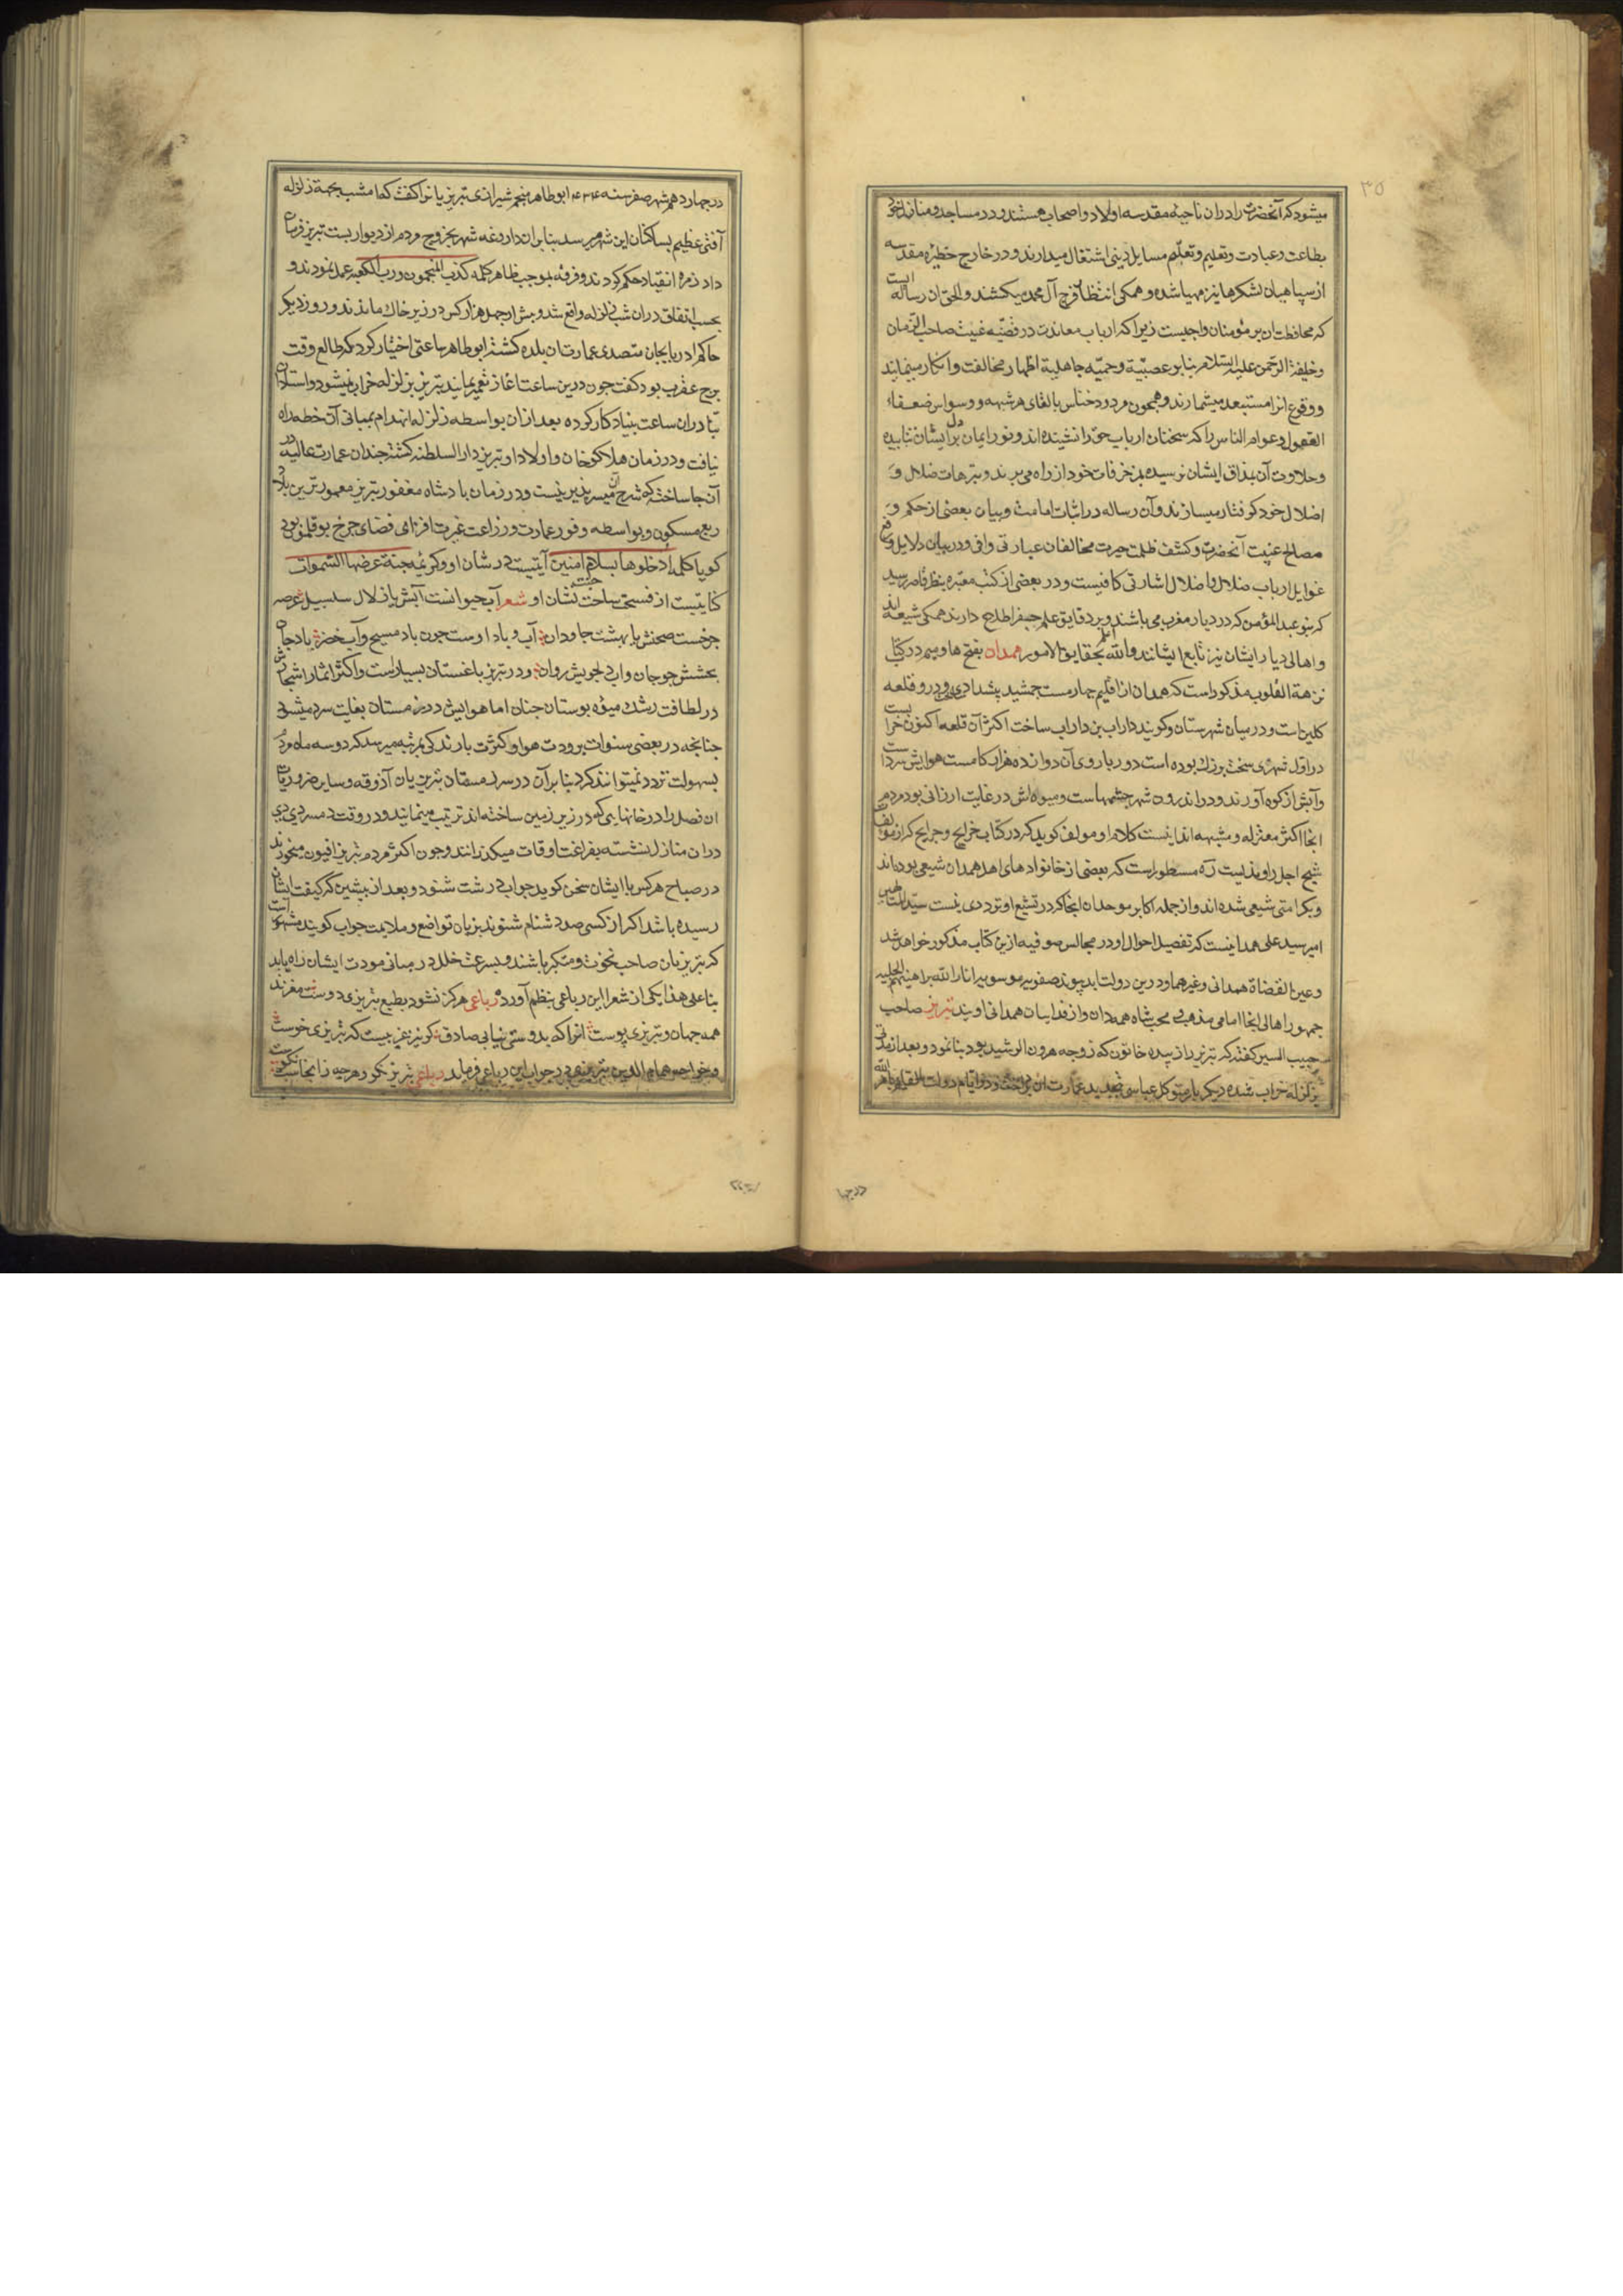 ۳۵
میشود که آنحضرت را دران ناحیهٔ مقدسه اولاد و اصحاب هستند و در مساجد و منازل خود
بطاعت و عبادت و تعلیم و تعلّم مسایل دینی اشتغال میدارند و در خارج حظیرهٔ مقدسه
از سپاهیان لشکرها نیز مهیا شده و همکی انتظار فرج آل محمد میکشند والحق ان رساله ایست
که محافظت ان بر مؤمنان واجبست زیرا که ارباب معاندت در قضیّه غیبت صاحب الزمان
و خلیفة الرحمن علیه السلام بنا بر عصبیّة و حمیّه جاهلیة اظهار مخالفت و انکار مینمایند
و وقوع انرا مستبعد میشمارند و همچون مردود خناس بالقای هر شبهه و وسواس ضعفاء
العقول و عوام الناس را که سخنان ارباب حق را نشنیده اند و نور ایمان بر دل ایشان نتابیده
و حلاوت آن بمذاق ایشان نرسیده بمزخرفات خود از راه می برند و بترهات ضلال و
اضلال خود کرفتار میسازند و آن رساله در اثبات امامت و بیان بعضی از حکم و
مصالح غیبت آنحضرت و کشف ظلمت حیرت مخالفان عبارتی وافی و در بیان دلایل و دفع
غوایل ارباب ضلال و اضلال اشارتی کافیست و در بعضی از کتب معتبره بنظر قاصر رسید
که بنو عبد المؤمن که در دیار مغرب می باشند و بر دقایق علم جفر اطلاع دارند همکی شیعه اند
و اهالی دیار ایشان نیز تابع ایشانند والله اعلم بحقایق الامور همدان بفتح ها و میم در کتاب
نزهة القلوب مذکور است که همدان از اقلیم چهارمست جمشید پشدادی و درو قلعه
کلین است و در میان شهرستان و کویند داراب بن داراب ساخت اکثر آن قلعه اکنون خرابست
در اوّل شهری سخت بزرك بوده است دور باروی آن دوازده هزار کامست هوایش سرد است
و آبش از کوه آورند و در اندرون شهر چشمهاست و میوه اش در غایت ارزانی بود مردم
انجا اکثر معتزله و مشبهه اند اینست کلام او و مولف کوید که در کتاب خرایج و جرایح که از مولفات
شیخ اجل راوندیست ره مسطور است که بعضی از خانواد های اهل همدان شیعی بوده اند
و بکرامتی شیعی شده اند و از جمله اکابر موحدان انجا که در تشیع او ترددی نیست سیّد المتالهین
امیر سید علی همدانیست که تفصیل احوال او در مجالس صوفیه ازین کتاب مذکور خواهد شد
و عین القضاة همدانی و غیرهما و درین دولت ابد پیوند صفویه موسویه انار الله براهینهم الجلیه
جمهور اهالی انجا امامی مذهب محب شاه همدان و از فداییان همدانی اویند تبریز صاحب
حبیب السیر کفته که تبریز را زبیده خاتون که زوجه هرون الرشید بود بنا نمود و بعد از مدتی
بزلزله خراب شده دیکر بار متوکل عباسی بتجدید عمارت ان پرداخت و در ایام دولت القایم بامر الله
در چها
در چهاردهم شهر صفر سنه ۴۳۴ ابوطاهر منجم شیرازی تبریزیانرا کفت که امشب بجهة زلزله
آفتی عظیم بساکنان این شهر میرسد بنا بران داروغه شهر بخروج مردم از دیوار بست تبریز فرمان
داد زمره انقیاد حکم کردند و فرقه بموجب ظاهر کلمه کذب المنجمون و رب الکعبه عمل نمودند و
بحسب اتفاق دران شب زلزله واقع شد و بیش از چهل هزار کس در زیر خاك ماندند و روز دیکر
حاکم اذربایجان متصدی عمارت ان بلده کشته ابوطاهر ساعتی اختیار کرد که طالع وقت
برج عقرب بود کفت چون درین ساعت اغاز تعمیر نمایند تبریز بزلزله خراب نمیشود و استادان
بنا دران ساعت بنیاد کار کرده بعد ازان بواسطه زلزله انهدام بمبانی آن خطه راه
نیافت و در زمان هلاکو خان و اولاد او تبریز دار السلطنه کشته چندان عمارت عالیه در
آن جا ساخته که شرح آن میسر پذیر نیست و در زمان پادشاه مغفور تبریز معمورترین بلاد
ربع مسکون و بواسطه وفور عمارت و زراعت غیرت افزای فضای چرخ بوقلمون بود
کویا کلمه ادخلوها بسلام امنین آیتیست در شان او و کریمه جنة عرضها السموات
کنایتیست از فسحت ساحت جنت نشان او شعر آب حیوانست آبش یا زلال سلسبیل عرصه
چرخست صحنش یا بهشت جاودان آب و باد اوست چون باد مسیح و آب خضر باد جان
بخشش چو جان و اب دلجویش روان و در تبریز باغستان بسیار است و اکثر اثمار اشجارش
در لطافت رشك میوه بوستان جنان اما هوایش در زمستان بغایت سرد میشود
چنانچه در بعضی سنوات برودت هوا و کثرت بارندکی بمرتبه میرسد که دو سه ماه مردم
بسهولت تردد نمیتوانند کرد بنا بران در سر زمستان تبریزیان آذوقه و سایر ضروریات
ان فصل را در خانهایی که در زیر زمین ساخته اند ترتیب مینمایند و در وقت دمسردی دی
دران منازل نشسته بفراغت اوقات میکذرانند و چون اکثر مردم تبریز افیون میخورند
در صباح هر کس با ایشان سخن کوید جوابی درشت شنود و بعد از پیشین که کیفت ایشان
رسیده باشد اکر از کسی صد دشنام شنوند بزبان تواضع و ملایمت جواب کویند مشهور است
که تبریزیان صاحب نخوت و متکبر باشند و بسرعت خلل در مبانی مودت ایشان راه یابد
بنا علی هذا یکی از شعرا این رباعی بنظم آورده رباعی هرکز نشود بطبع تبریزی دوست مغزند
همه جهان و تبریزی پوست انرا که بدوستی نیابی صادق کر نیز غریبست که تبریزی خوست
و خواجه همام الدین تبریزی در جواب این رباعی فرماید رباعی تبریز نکو و هرچه زانجاست نکوست